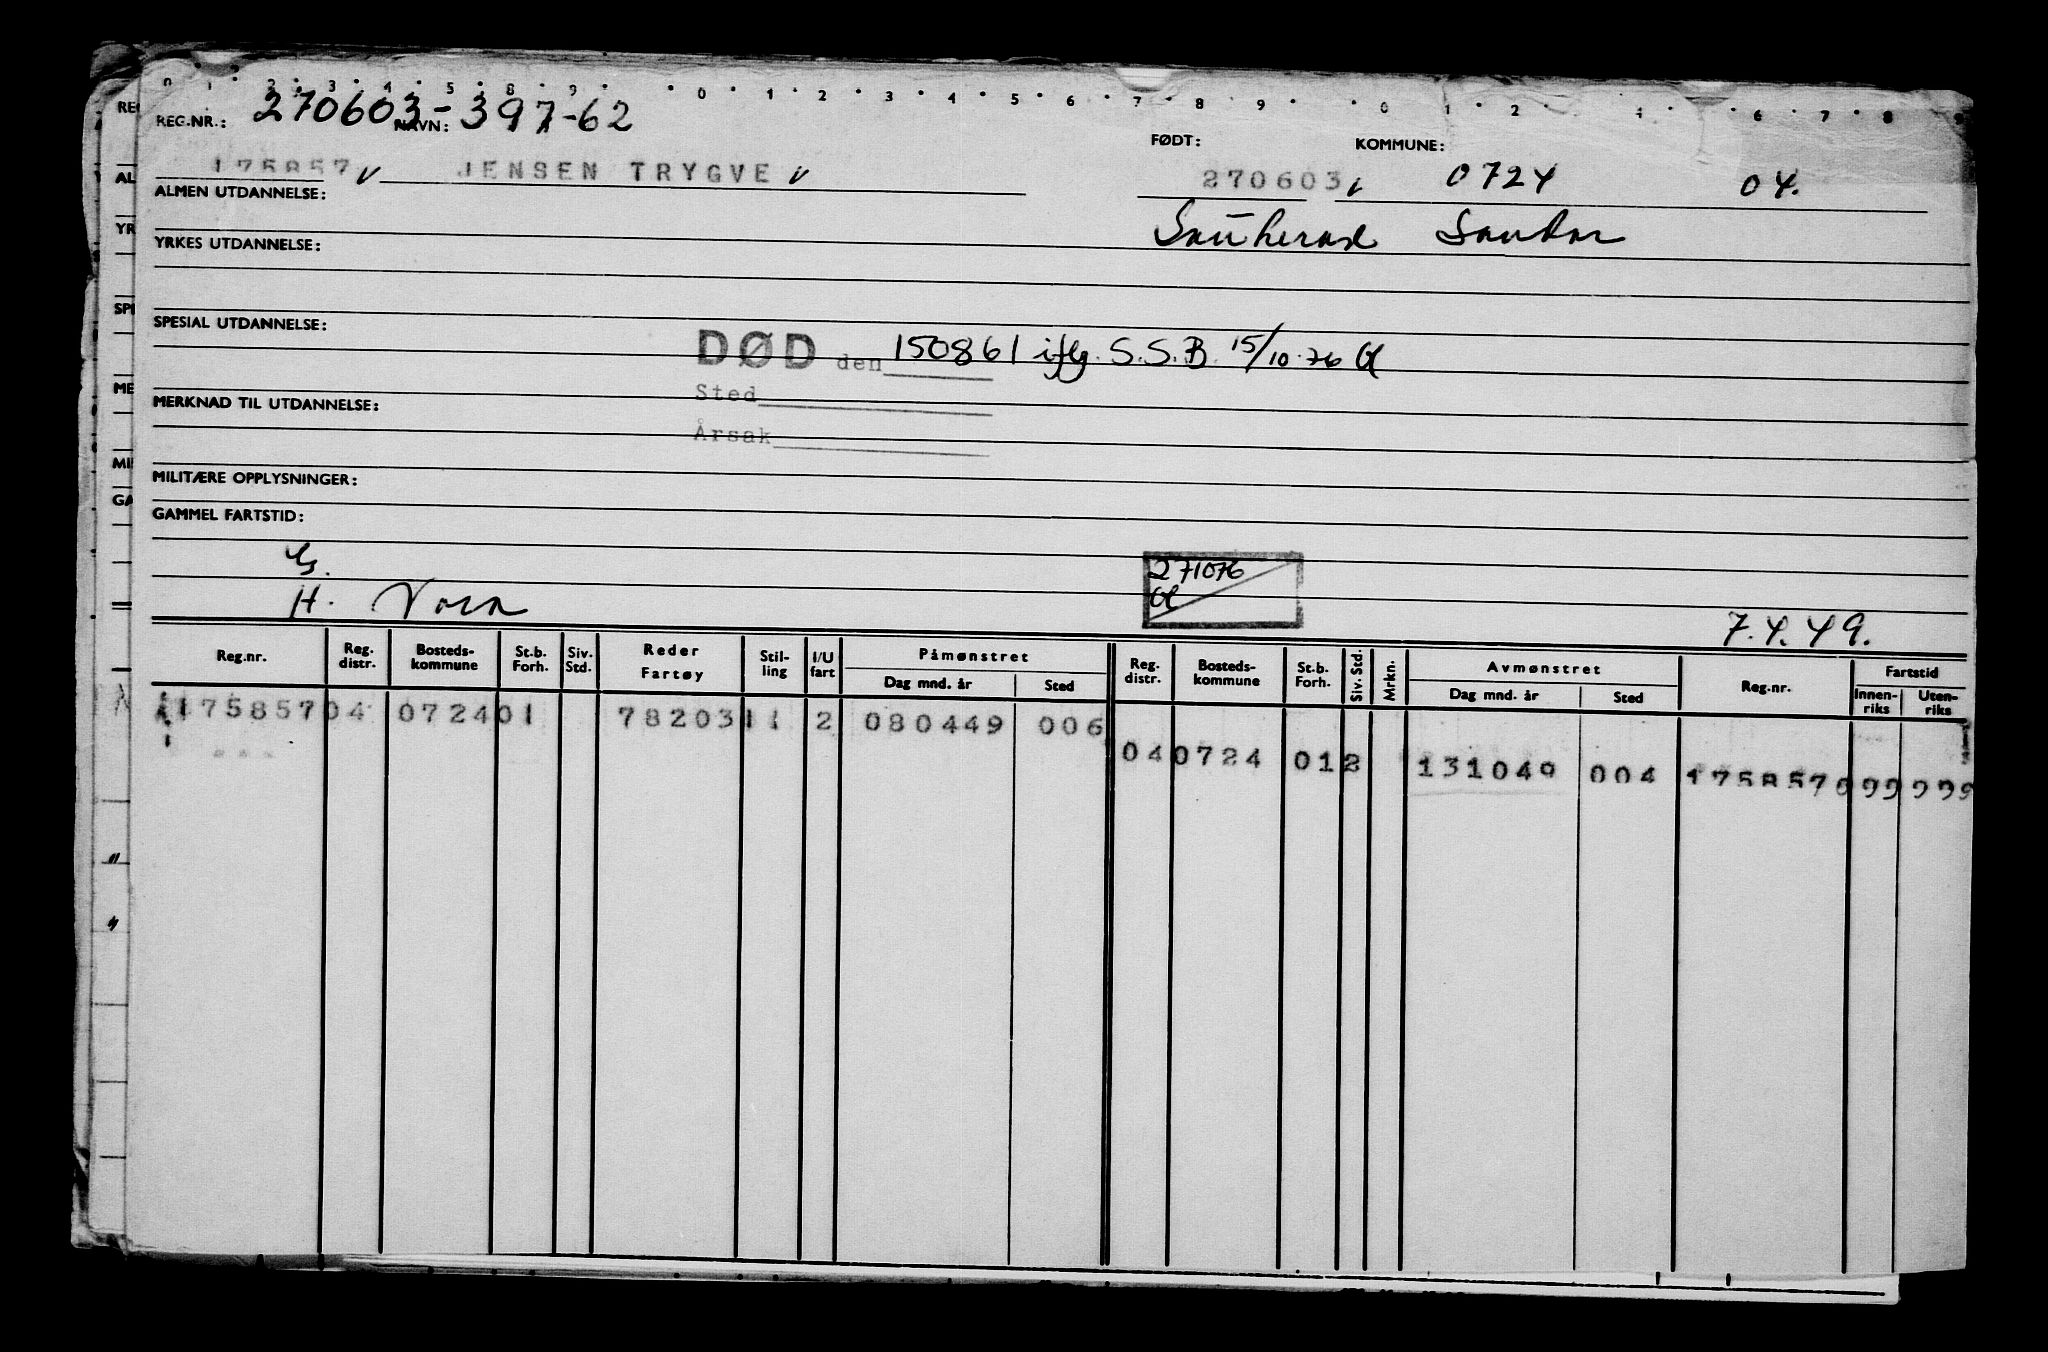 0 1 2 3 4 5 8 9 0 1 2 3 4 5 6 7 8 9 0 1 2 4 6 7 8 9
REG.NR.: 270603-397-62 NAVN:
FØDT: KOMMUNE:
175857 v JENSEN TRYGVE v 270603 v 0724 04.
ALMEN UTDANNELSE:
Sauherad Sandar
YRKES UTDANNELSE:
SPESIAL UTDANNELSE:
DØD den 150861 iflg. S.S.B. 15/10-76
Sted
MERKNAD TIL UTDANNELSE:
Årsak
MILITÆRE OPPLYSNINGER:
GAMMEL FARTSTID:
271076
H.
7.4.49.
Reg.nr. Reg. distr. Bosteds-kommune St.b. Forh. Siv. Std. Reder Fartøy Stil-ling I/U fart Påmønstret Dag mnd. år Sted Reg. distr. Bosteds-kommune St.b. Forh. Siv. Std. Mrkn. Avmønstret Dag mnd. år Sted Reg.nr. Fartstid Innen-riks Uten-riks
175857 04 0724 01 78203 11 2 080449 006
04 0724 01 2 131049 004 175857 0 99 999